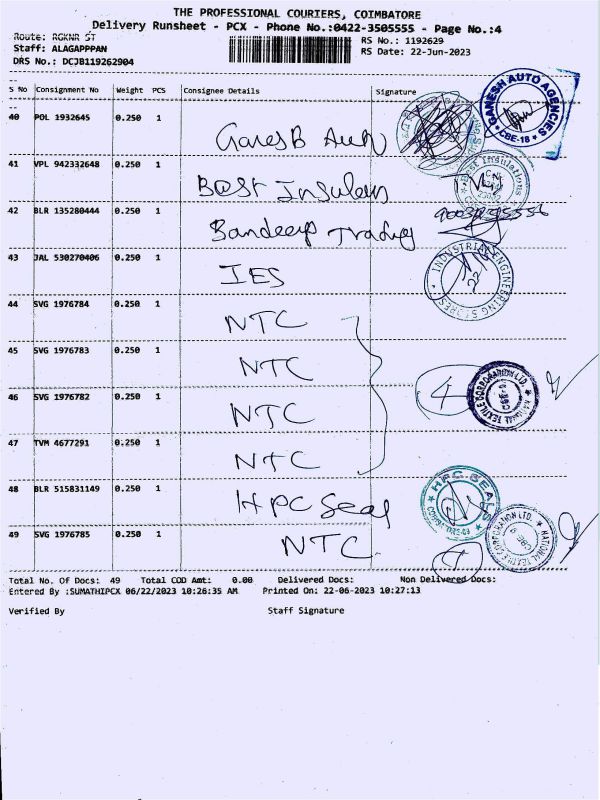 THE PROFESSIONAL COURIERS, COIMBATORE
Delivery Runsheet - PCX - Phone No.:0422-3505555 - Page No.:4
Route: RGKNR ST
RS No.: 1192629
Staff: ALAGAPPPAN
RS Date: 22-Jun-2023
DRS No.: DCJB119262904
S No Consignment No Weight PCS Consignee Details Signature
40 POL 1932645 0.250 1
GANESH AUTO AGENCIES
CBE-18
41 VPL 942332648 0.250 1 Best Insulation
Best Insulations
42 BLR 135280444 0.250 1 Sandeep Trading
43 JAL 530270406 0.250 1 IES
INDUSTRIAL ENGINEERING STORES
22
44 SVG 1976784 0.250 1 NTC
45 SVG 1976783 0.250 1 NTC
46 SVG 1976782 0.250 1 NTC
4
NATIONAL TEXTILE CORPORATION LTD.
47 TVM 4677291 0.250 1 NTC
48 BLR 515831149 0.250 1 HPC Seal
H.P.C. SEALS
49 SVG 1976785 0.250 1 NTC.
1
NATIONAL TEXTILE CORPORATION LTD.
CBE 9
Total No. Of Docs: 49 Total COD Amt: 0.00 Delivered Docs: Non Delivered Docs:
Entered By :SUMATHIPCX 06/22/2023 10:26:35 AM Printed On: 22-06-2023 10:27:13
Verified By Staff Signature